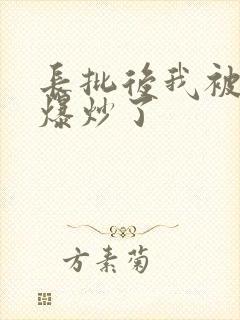 長批後我被
爆炒了
方素菊